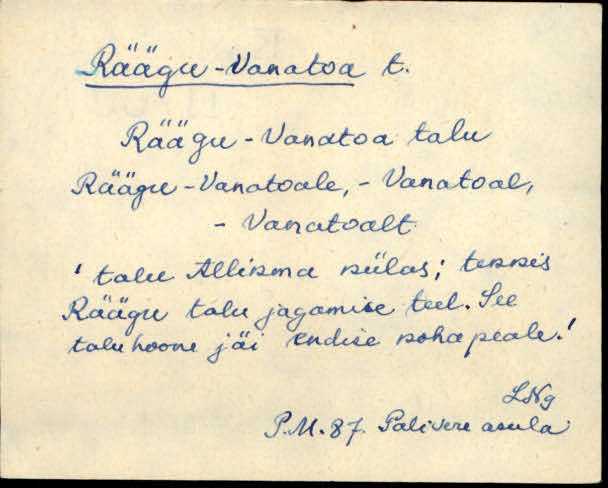 Räägu-Vanatoa t.
Räägu-Vanatoa talu
Räägu-Vanatoale, -Vanatoal,
-Vanatoalt
'talu Allikma külas; tekkis
Räägu talu jagamise teel. See
taluhoone jäi endise koha peale.'
LNg
P.M. 87. Palivere asula